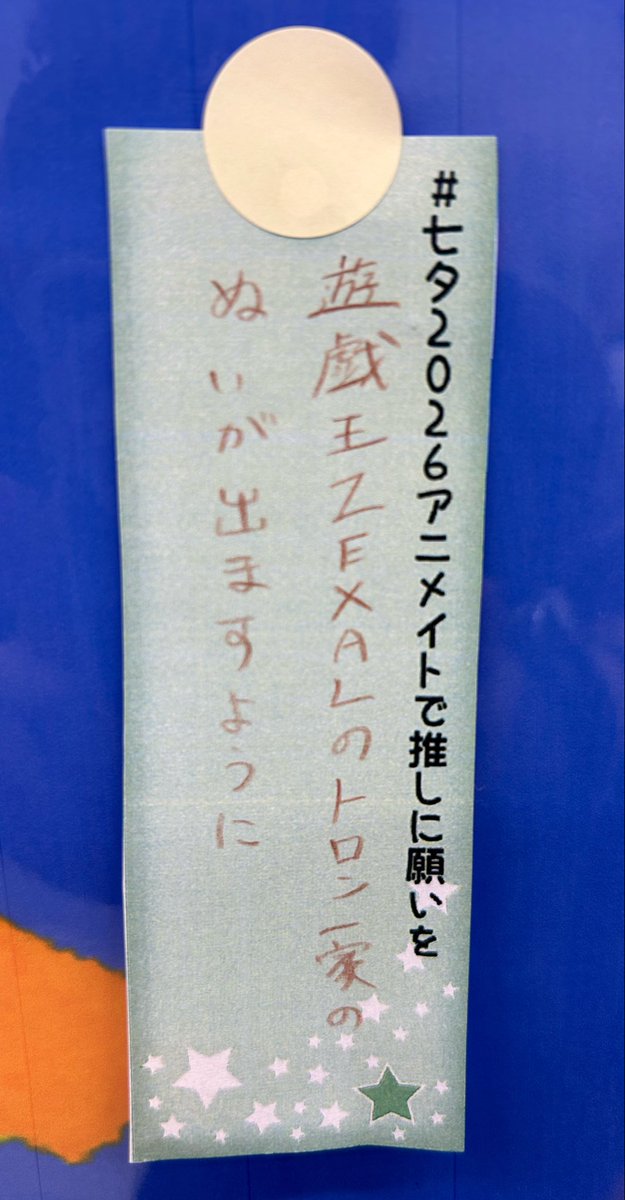 #七夕2026アニメイトで推しに願いを
遊戯王ZEXALのトロン一家の
ぬいが出ますように